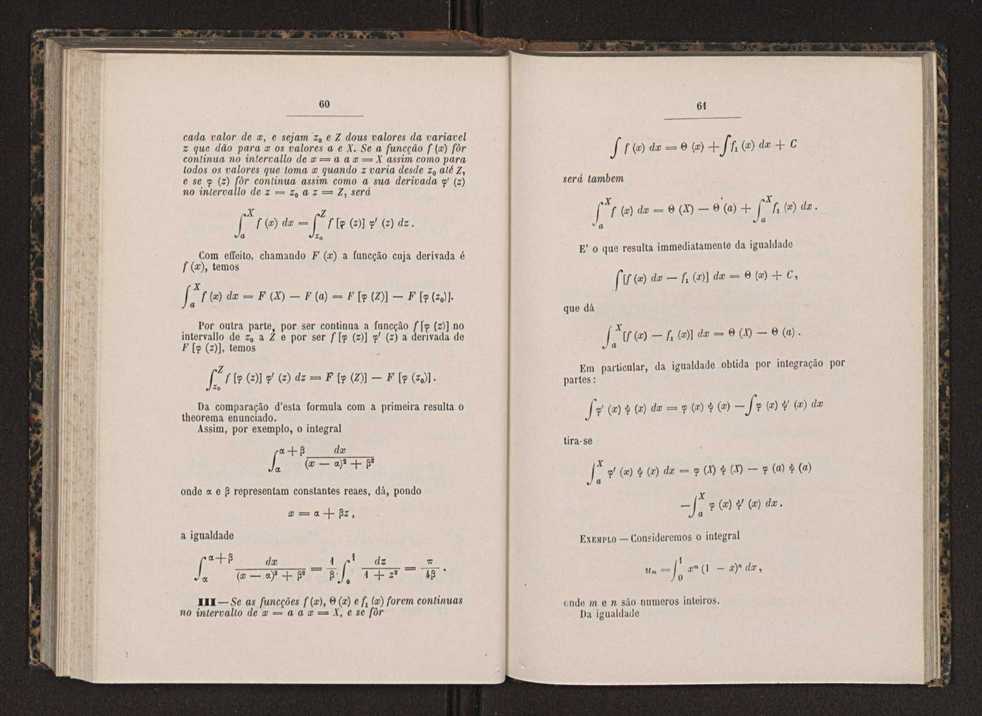 60
cada valor de x, e sejam z₀ e Z dous valores da variavel
z que dão para x os valores a e X. Se a funcção f (x) fôr
continua no intervallo de x = a a x = X assim como para
todos os valores que toma x quando z varia desde z₀ até Z,
e se φ (z) fôr continua assim como a sua derivada φ′ (z)
no intervallo de z = z₀ a z = Z, será
∫ₐ^X f (x) dx = ∫_{z₀}^Z f [φ (z)] φ′ (z) dz .
Com effeito, chamando F (x) a funcção cuja derivada é
f (x), temos
∫ₐ^X f (x) dx = F (X) — F (a) = F [φ (Z)] — F [φ (z₀)].
Por outra parte, por ser continua a funcção f [φ (z)] no
intervallo de z₀ a Z e por ser f [φ (z)] φ′ (z) a derivada de
F [φ (z)], temos
∫_{z₀}^Z f [φ (z)] φ′ (z) dz = F [φ (Z)] — F [φ (z₀)] .
Da comparação d'esta formula com a primeira resulta o
theorema enunciado.
Assim, por exemplo, o integral
∫_α^{α + β} dx / ((x — α)² + β²)
onde α e β representam constantes reaes, dá, pondo
x = α + βz ,
a igualdade
∫_α^{α + β} dx / ((x — α)² + β²) = 1/β ∫₀^1 dz / (1 + z²) = π / 4β .
III — Se as funcções f (x), Θ (x) e f₁ (x) forem continuas
no intervallo de x = a a x = X, e se fôr
61
∫ f (x) dx = Θ (x) + ∫ f₁ (x) dx + C
será tambem
∫ₐ^X f (x) dx = Θ (X) — Θ (a) + ∫ₐ^X f₁ (x) dx .
E' o que resulta immediatamente da igualdade
∫ [f (x) dx — f₁ (x)] dx = Θ (x) + C ,
que dá
∫ₐ^X [f (x) — f₁ (x)] dx = Θ (X) — Θ (a) .
Em particular, da igualdade obtida por integração por
partes :
∫ φ′ (x) ψ (x) dx = φ (x) ψ (x) — ∫ φ (x) ψ′ (x) dx
tira-se
∫ₐ^X φ′ (x) ψ (x) dx = φ (X) ψ (X) — φ (a) ψ (a)
— ∫ₐ^X φ (x) ψ′ (x) dx .
EXEMPLO — Consideremos o integral
uₘ = ∫₀^1 xᵐ (1 — x)ⁿ dx ,
onde m e n são numeros inteiros.
Da igualdade